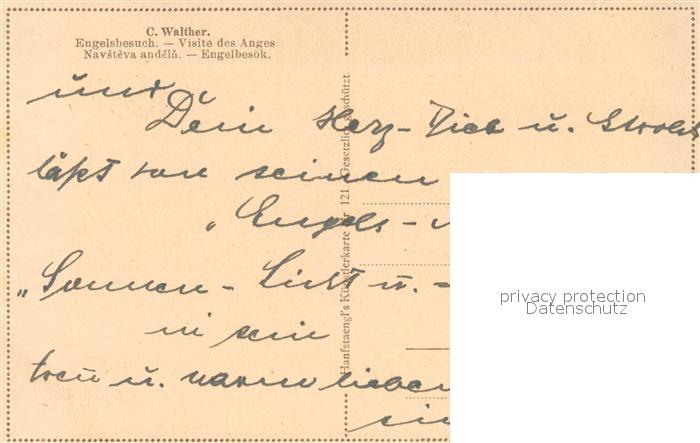 C. Walther.
Engelsbesuch. — Visite des Anges
Navštěva andělů. — Engelbesök.
und
Dein Herz-Dieb u.
läßt von seinen
„Engels-
„Sonnen-Licht u.-
in sein
treu u. warm lieben
Hanfstaengl's Künstlerkarte Nr. 121. Gesetzlich geschützt.
privacy protection
Datenschutz